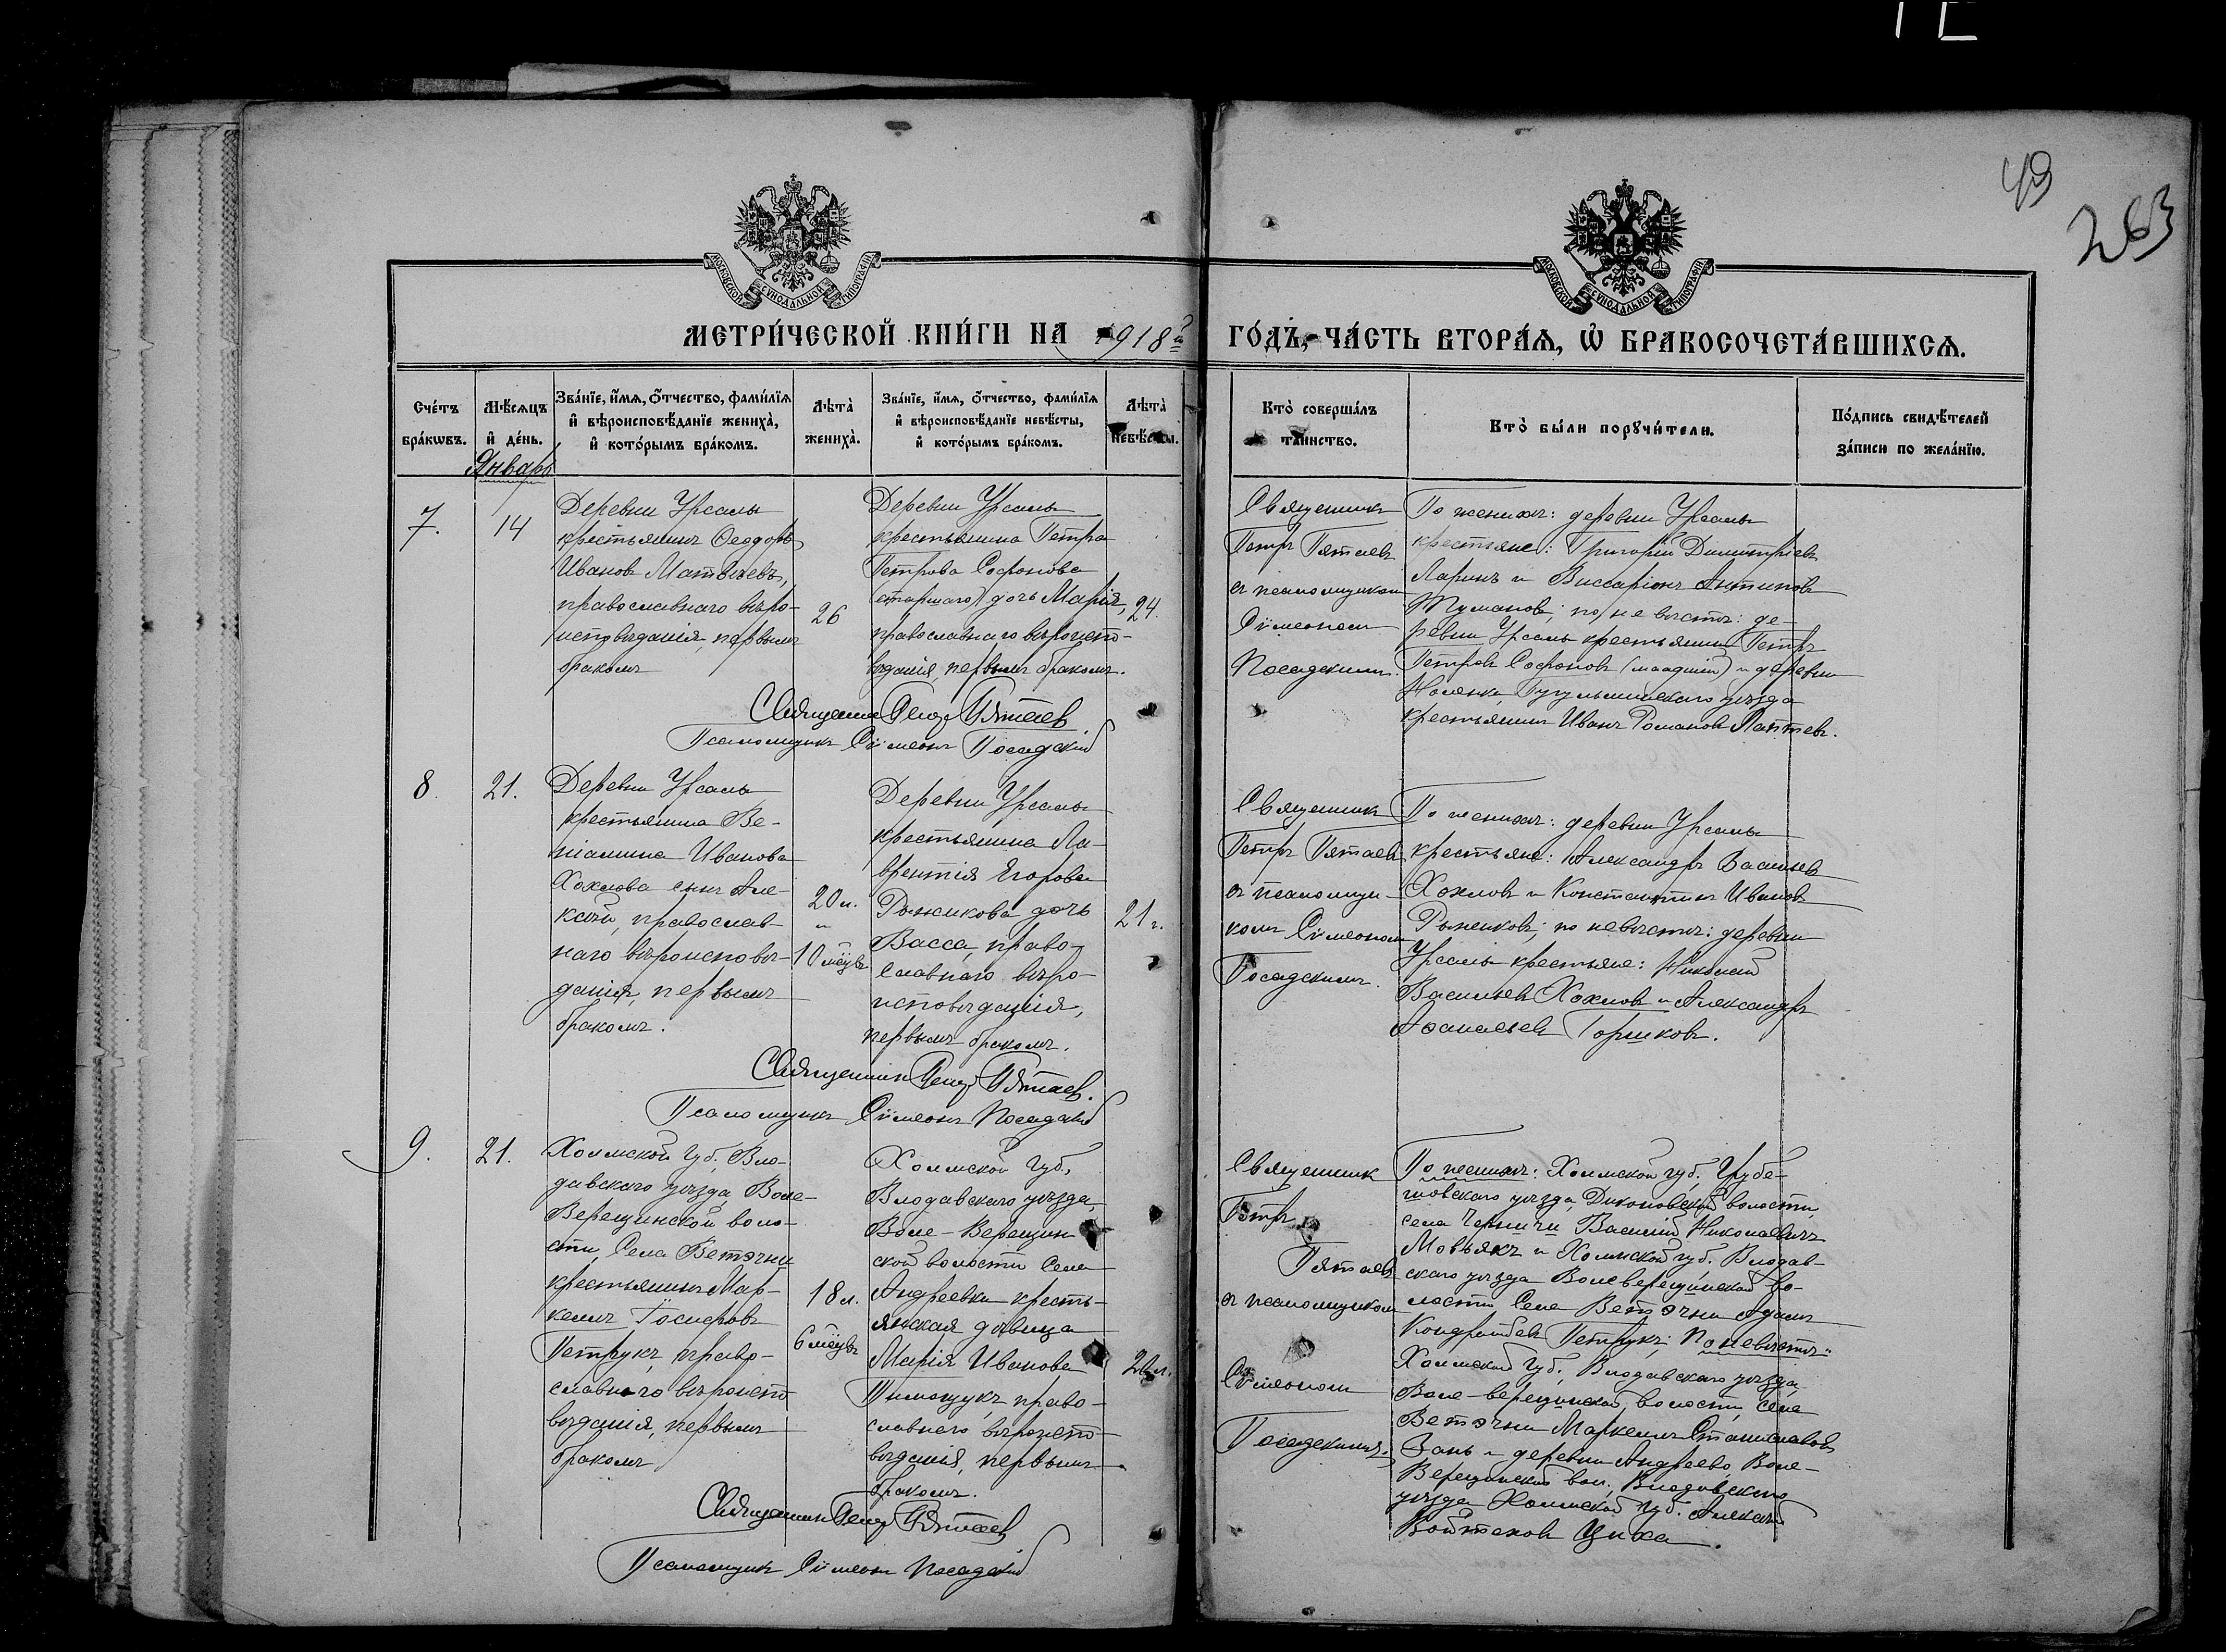 49
263
МОСКОВСКОЙ СѴНОДАЛЬНОЙ ТИПОГРАФІИ
МОСКОВСКОЙ СѴНОДАЛЬНОЙ ТИПОГРАФІИ
МЕТРИ́ЧЕСКОЙ КНИ́ГИ НА 1918й ГО́ДЪ, ЧА́СТЬ ВТОРА́Ѧ, Ѡ БРАКОСОЧЕТА́ВШИХСѦ.
Сче́тъ бра́кѡвъ.
Мѣ́сѧцъ и҆ де́нь.
Зва́нїе, и҆́мѧ, ѻ҆́тчество, фами́лїѧ и҆ вѣроисповѣ́данїе жениха̀, и҆ кото́рымъ бра́комъ.
Лѣта̀ жениха̀.
Зва́нїе, и҆́мѧ, ѻ҆́тчество, фами́лїѧ и҆ вѣроисповѣ́данїе невѣ́сты, и҆ кото́рымъ бра́комъ.
Лѣта̀ невѣ́сты.
Кто̀ соверша́лъ та́инство.
Кто̀ бы́ли порꙋчи́тели.
По́дпись свидѣ́телей за́писи по жела́нїю.
Январь
7.
14
Деревни Урсалы
крестьянинъ Ѳеодоръ
Ивановъ Матвѣевъ,
православнаго вѣро-
исповѣданія, первымъ
бракомъ
26
Деревни Урсалы
крестьянина Петра
Петрова Софонова
(старшаго) дочь Марія,
православнаго вѣроиспо-
вѣданія, первымъ бракомъ.
24.
Священникъ
Петръ Пятаевъ
съ псаломщикомъ
Сѵмеономъ
Посадскимъ.
По женихѣ: деревни Урсалы
крестьяне: Григорій Димитріевъ
Ларинъ и Виссаріонъ Антиповъ
Тумановъ; по невѣстѣ: де-
ревни Урсалы крестьянинъ Петръ
Петровъ Софоновъ (младшій) и деревни
Бугульминскаго уѣзда
крестьянинъ Иванъ Романовъ Лаптевъ.
Священникъ Петръ Пятаев
Псаломщикъ Сѵмеонъ Посадскій
8.
21.
Деревни Урсалы
крестьянина Ве-
ніамина Иванова
Хохлова сынъ Але-
ксѣй, православ-
наго вѣроисповѣ-
данія, первымъ
бракомъ.
20 л.
и
10 мѣсцв
Деревни Урсалы
крестьянина Ла-
врентія Егорова
Рыжикова дочь
Васса, право-
славнаго вѣро-
исповѣданія,
первымъ бракомъ.
21 г.
Священникъ
Петръ Пятаевъ
съ псаломщи-
комъ Сѵмеономъ
Посадскимъ.
По женихѣ: деревни Урсалы
крестьяне: Александръ Васильевъ
Хохловъ и Константинъ Ивановъ
Рыжиковъ; по невѣстѣ: деревни
Урсалы крестьяне: Николай
Васильевъ Хохловъ и Александръ
Аѳанасьевъ Горшковъ.
Священникъ Петръ Пятаев.
Псаломщикъ Сѵмеонъ Посадскій
9.
21.
Холмской губ. Вло-
давскаго уѣзда Воле-
Верещинской воло-
сти, Села Ветэчни
крестьянинъ Мар-
келлъ Іосифовъ
Петрукъ, право-
славнаго вѣроиспо
вѣданія, первымъ
бракомъ
18 л.
6 мѣсцв
Холмской губ,
Влодавскаго уѣзда,
Воле-Верещин
ской волости села
Андреевки кресть-
янская дѣвица
Марія Иванова
право-
славнаго вѣроиспо-
вѣданія, первымъ
бракомъ.
Священникъ
Петръ
Пятаевъ
съ псаломщикомъ
Сѵмеономъ
Посадскимъ.
По женихѣ: Холмской губ. Грубе-
шовскаго уѣзда, волости,
села Василій Николаевичъ
и Холмской губ. Влодав-
скаго уѣзда Волеверещинской во-
лости Села Ветэчни Адамъ
Петрукъ; По невѣстѣ:
Холмской губ, Влодавскаго уѣзда,
Воле-верещинской волости, села
Ветэчни Маркеллъ Станиславовъ
и деревни Андреево, Воле-
Верещинской вол., Влодавскаго
уѣзда Холмской губ. Алексѣй
Циха.
Священникъ Петръ Пятаев
Псаломщикъ Сѵмеонъ Посадскій